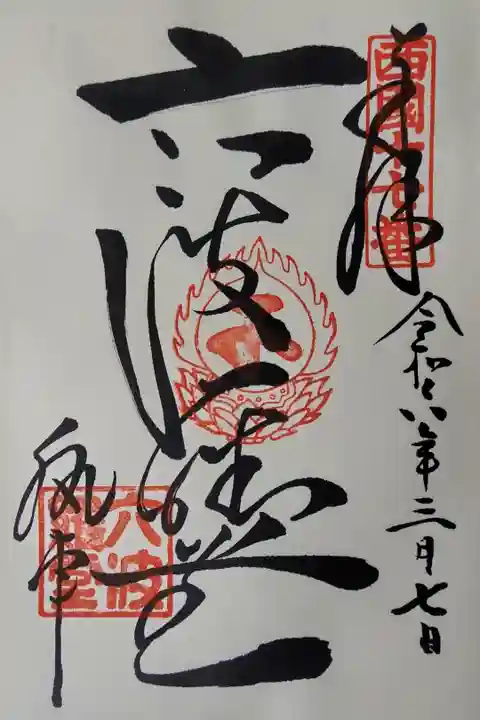 西國十七番
奉拝
令和六年三月七日
六波羅堂
六波羅堂
執事